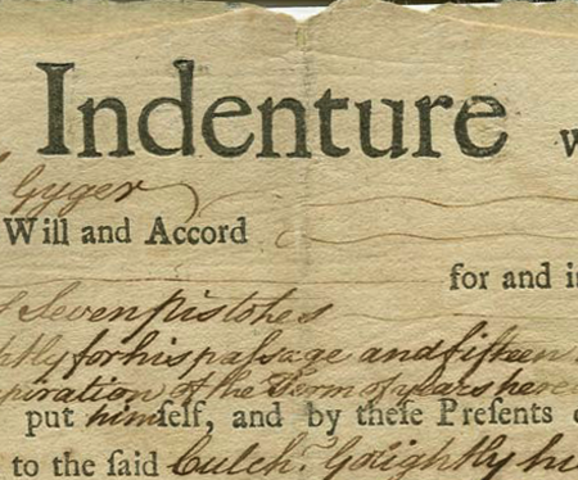 Indenture w
Gyger
Will and Accord
for and i
Seven pistoles
htly for his paſsage and fifteen
piration of the Term of years here
put himſelf, and by theſe Preſents
to the ſaid Culch. Golightly hi